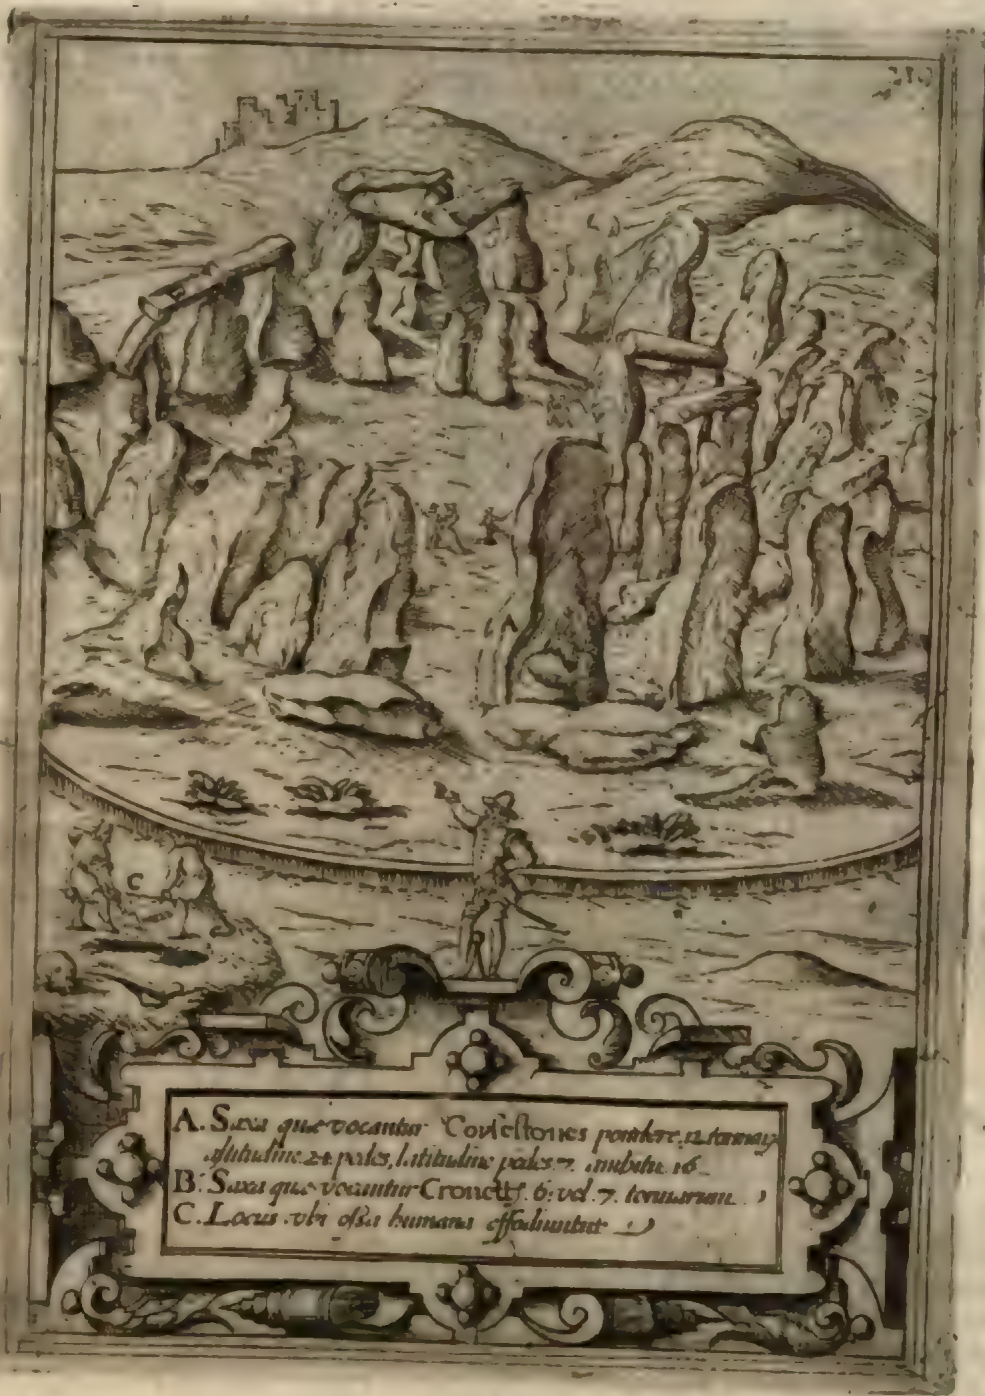 219
C
A. Saxa quæ vocantur Corselstones pondere 12. tonnarū
altitudine 24 pedes, latitudine pedes 7. ambitu 16
B. Saxa quæ vocantur Cronetts. 6. vel. 7. tonnarum
C. Locus vbi ossa humana effodiuntur